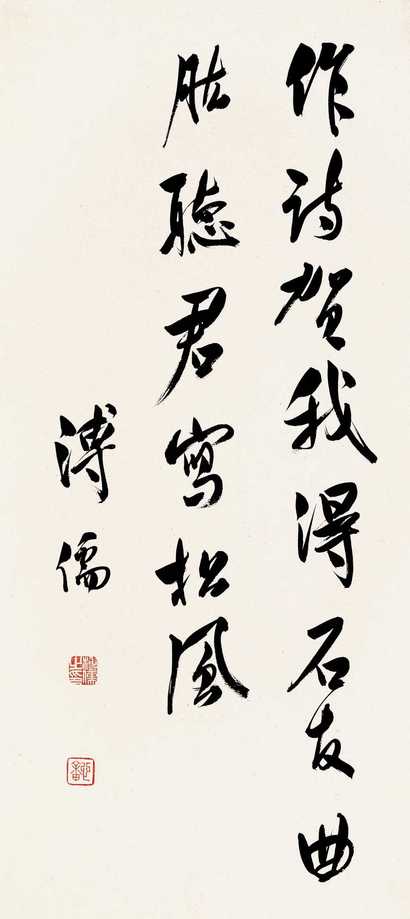 作詩賀我得石友曲
肱聽君寫松風
溥儒